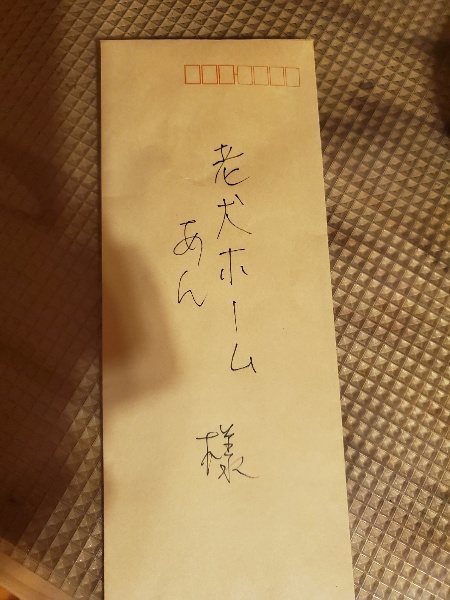 老犬ホーム
あん
様